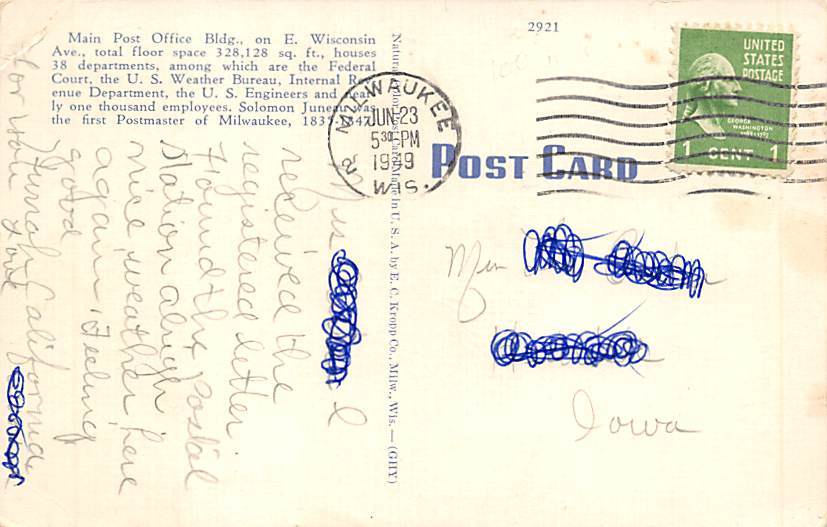 2921
Main Post Office Bldg., on E. Wisconsin
Ave., total floor space 328,128 sq. ft., houses
38 departments, among which are the Federal
Court, the U. S. Weather Bureau, Internal Rev
enue Department, the U. S. Engineers and near
ly one thousand employees. Solomon Juneau was
the first Postmaster of Milwaukee, 1835-1847.
Natural Color Post Card Made in U. S. A. by E. C. Kropp Co., Milw., Wis.—(GHY)
MILWAUKEE
JUN 23
5 30 PM
1939
WIS.
2
UNITED
STATES
POSTAGE
GEORGE
WASHINGTON
1789-1797
1 CENT 1
POST CARD
Iowa
received the
registered letter.
Found the postal
station alright
nice weather here
again. Feeling
good
Hurrah California
for you
Love